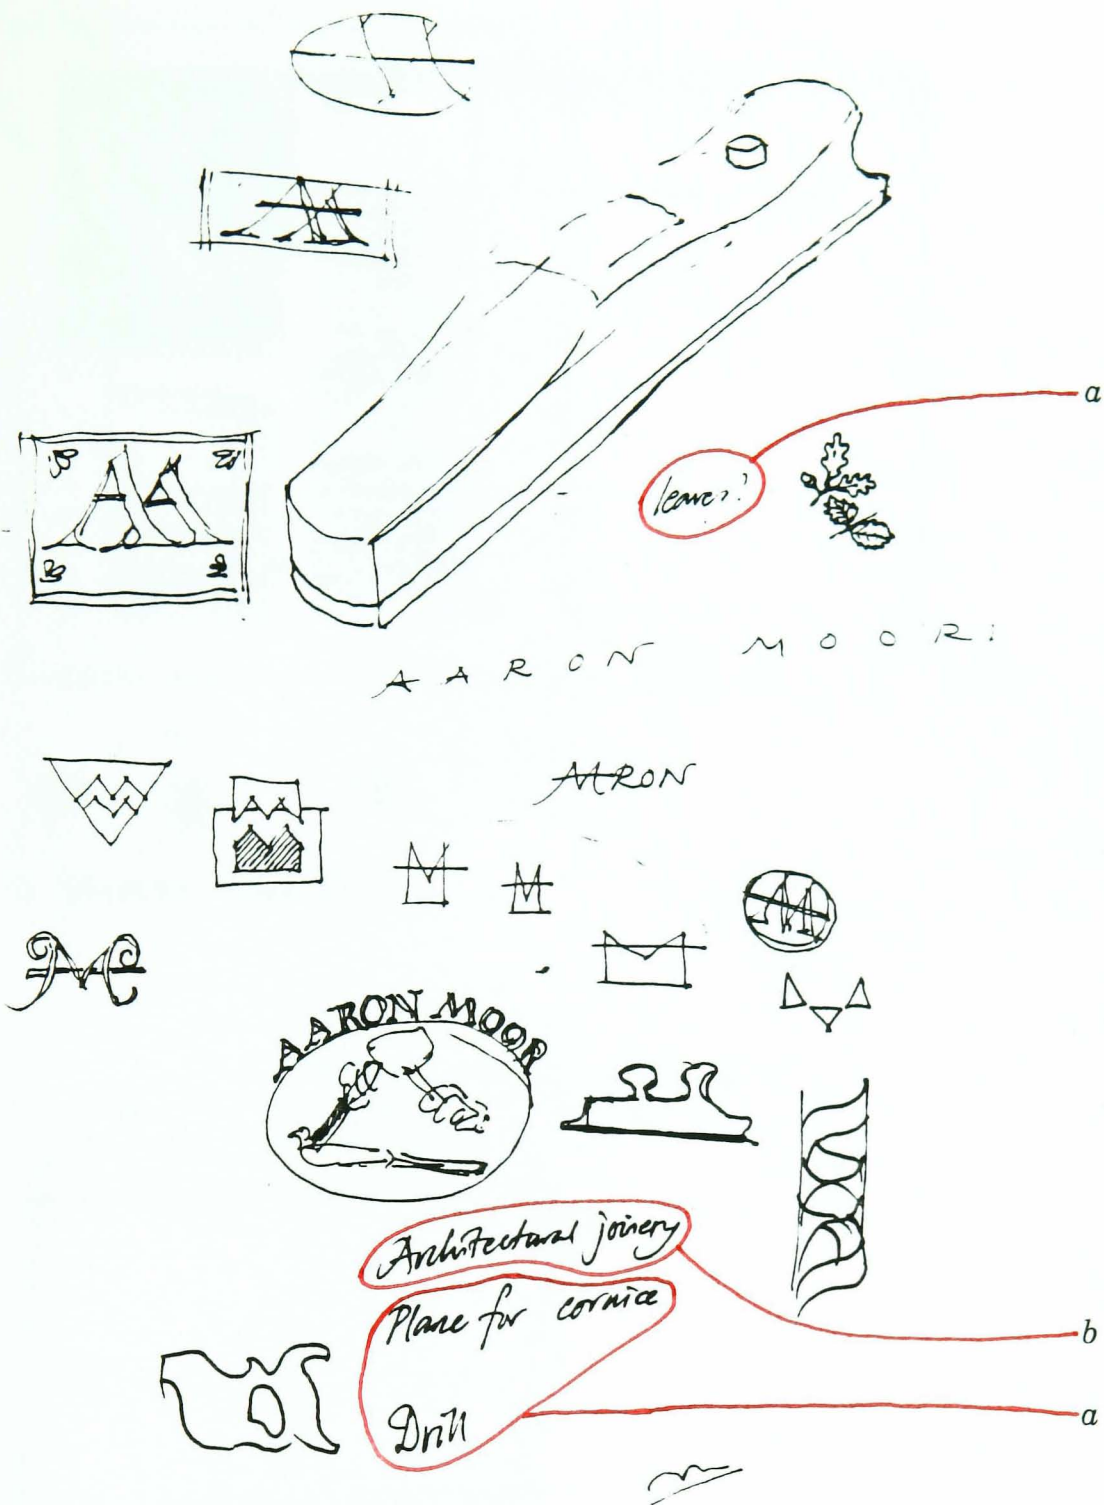 AA
a
leaves?
AARON MOOR
ARON
M
M
M
M
AARON MOOR
Architectural joinery
Plane for cornice
b
Drill
a